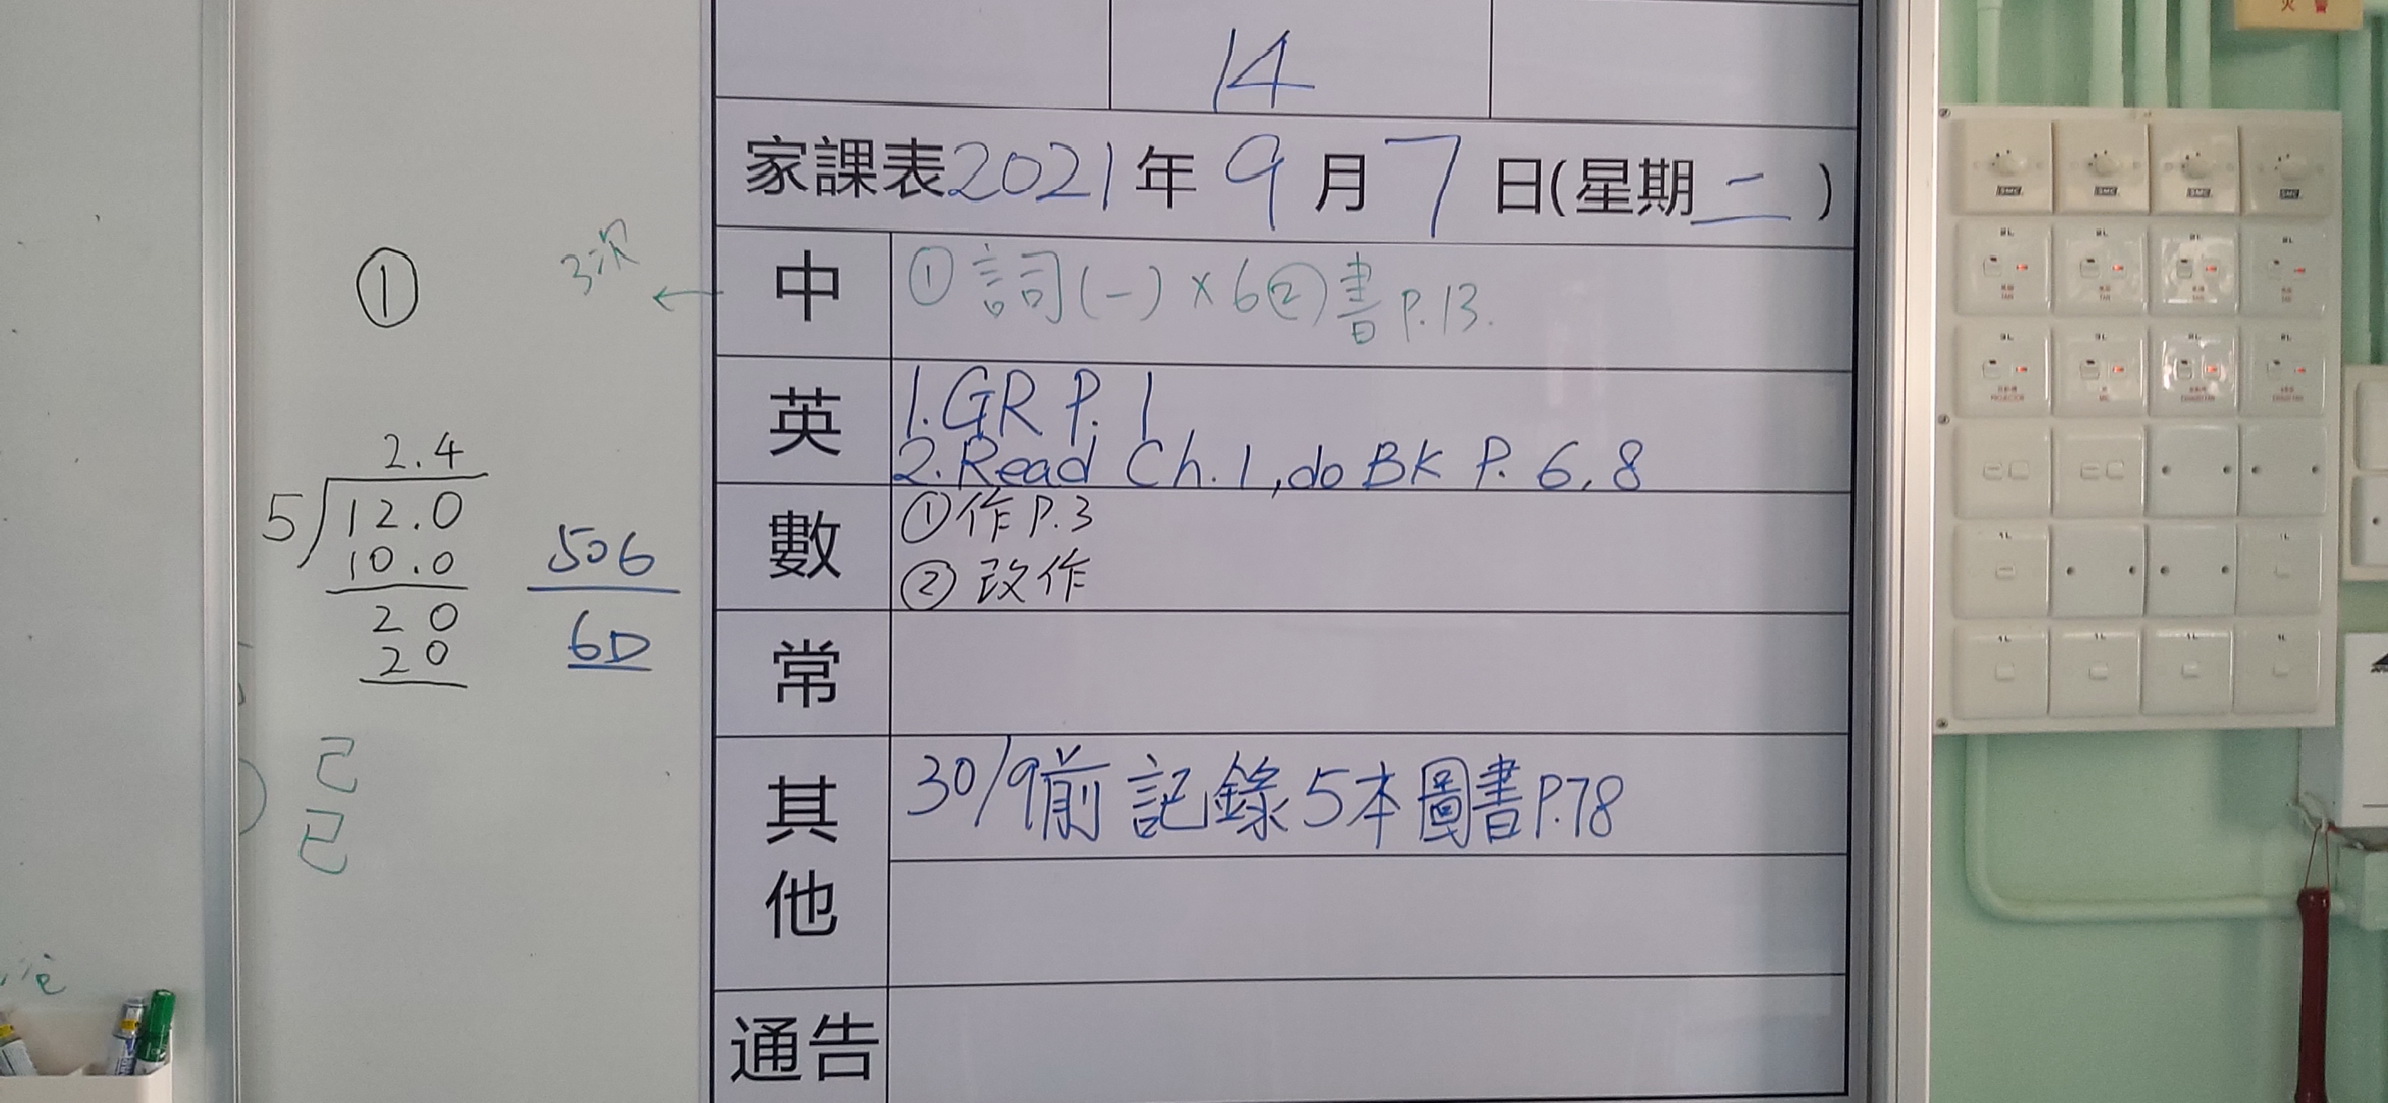 14
家課表2021年9月7日(星期二)
3次
中 ①詞(一)×6②書P.13.
英 1.GR P.1
2.Read Ch.1,do BK P.6,8
數 ①作P.3
②改作
常
其他 30/9前記錄5本圖書P.78
通告
①
2.4
5 12.0
10.0
20
20
506
6D
己
已
火警